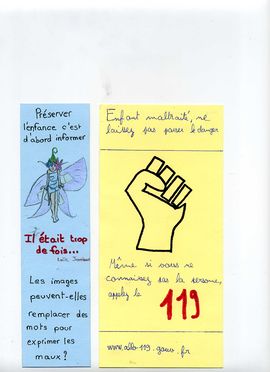 Préserver
l'enfance c'est
d'abord informer
Il était trop
de fois...
Les images
peuvent-elles
remplacer des
mots pour
exprimer les
maux ?
Enfant maltraité, ne
laissez pas passer le danger
Même si vous ne
connaissez pas la personne,
appelez le
119
www.allo-119.gouv.fr